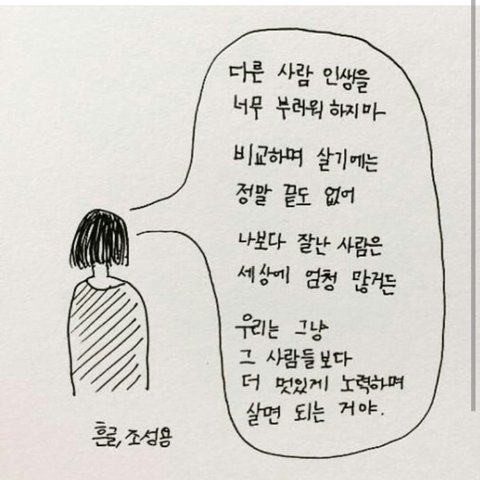 다른 사람 인생을
너무 부러워 하지마
비교하며 살기에는
정말 끝도 없어
나보다 잘난 사람은
세상에 엄청 많거든
우리는 그냥
그 사람들보다
더 멋있게 노력하며
살면 되는 거야.
흔글, 조성용